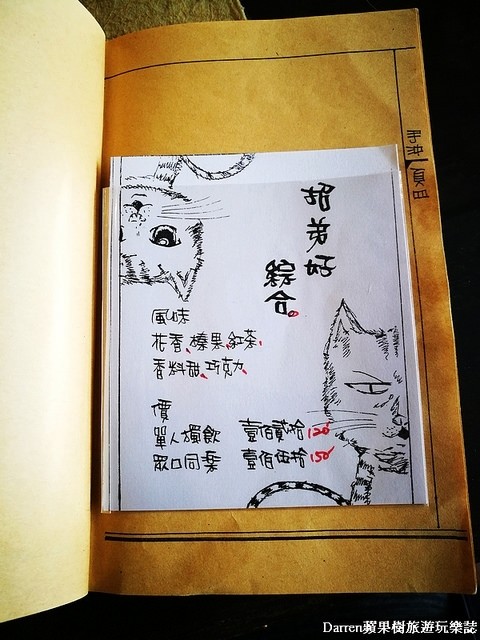 招弟好
綜合。
風味
花香、榛果、紅茶、
香料甜、巧克力、
價
單人獨飲 壹佰貳拾 120
眾口同葉 壹佰伍拾 150
Darren蘋果樹旅遊玩樂誌